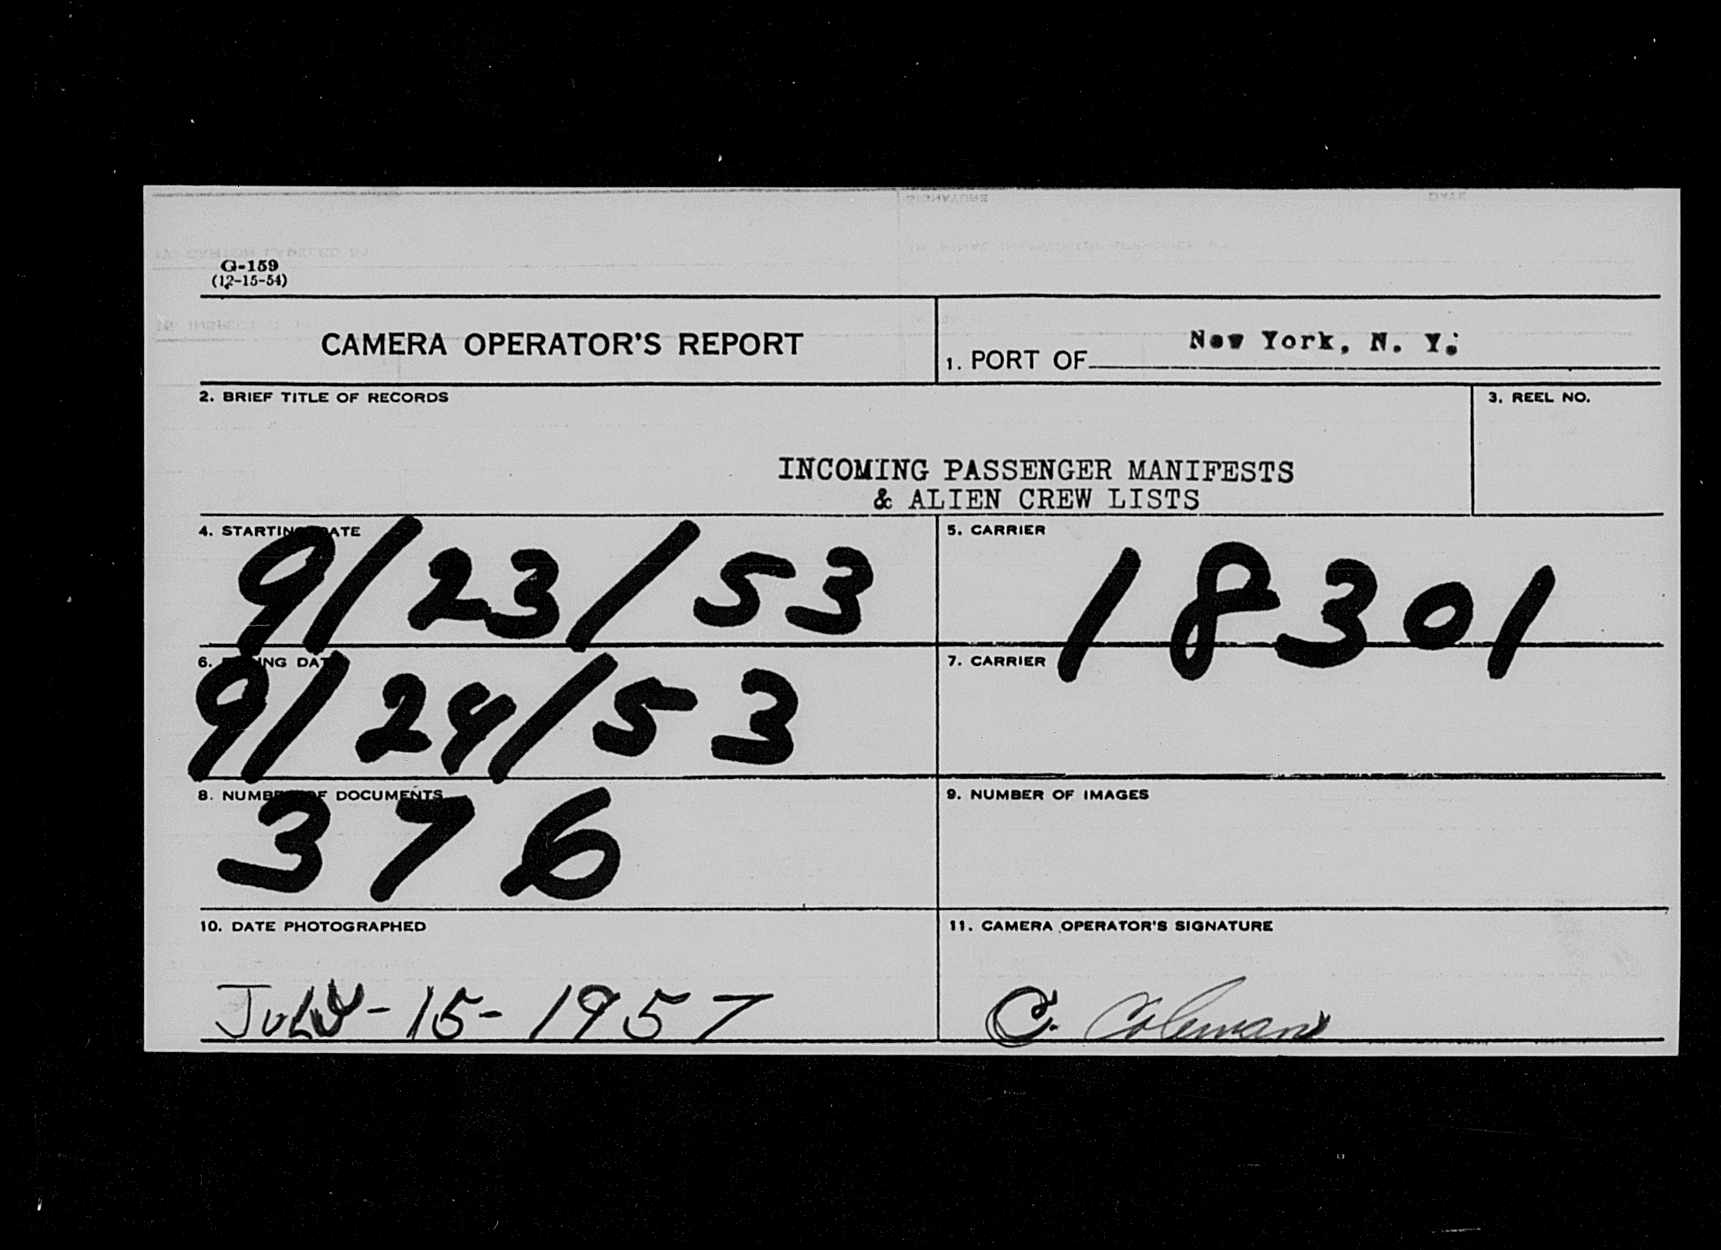 G-159
(12-15-54)
CAMERA OPERATOR'S REPORT
1. PORT OF New York, N. Y.
2. BRIEF TITLE OF RECORDS
3. REEL NO.
INCOMING PASSENGER MANIFESTS
& ALIEN CREW LISTS
4. STARTING DATE
9/23/53
5. CARRIER
18301
6. ENDING DATE
9/24/53
7. CARRIER
8. NUMBER OF DOCUMENTS
376
9. NUMBER OF IMAGES
10. DATE PHOTOGRAPHED
JULY-15-1957
11. CAMERA OPERATOR'S SIGNATURE
C. Coleman